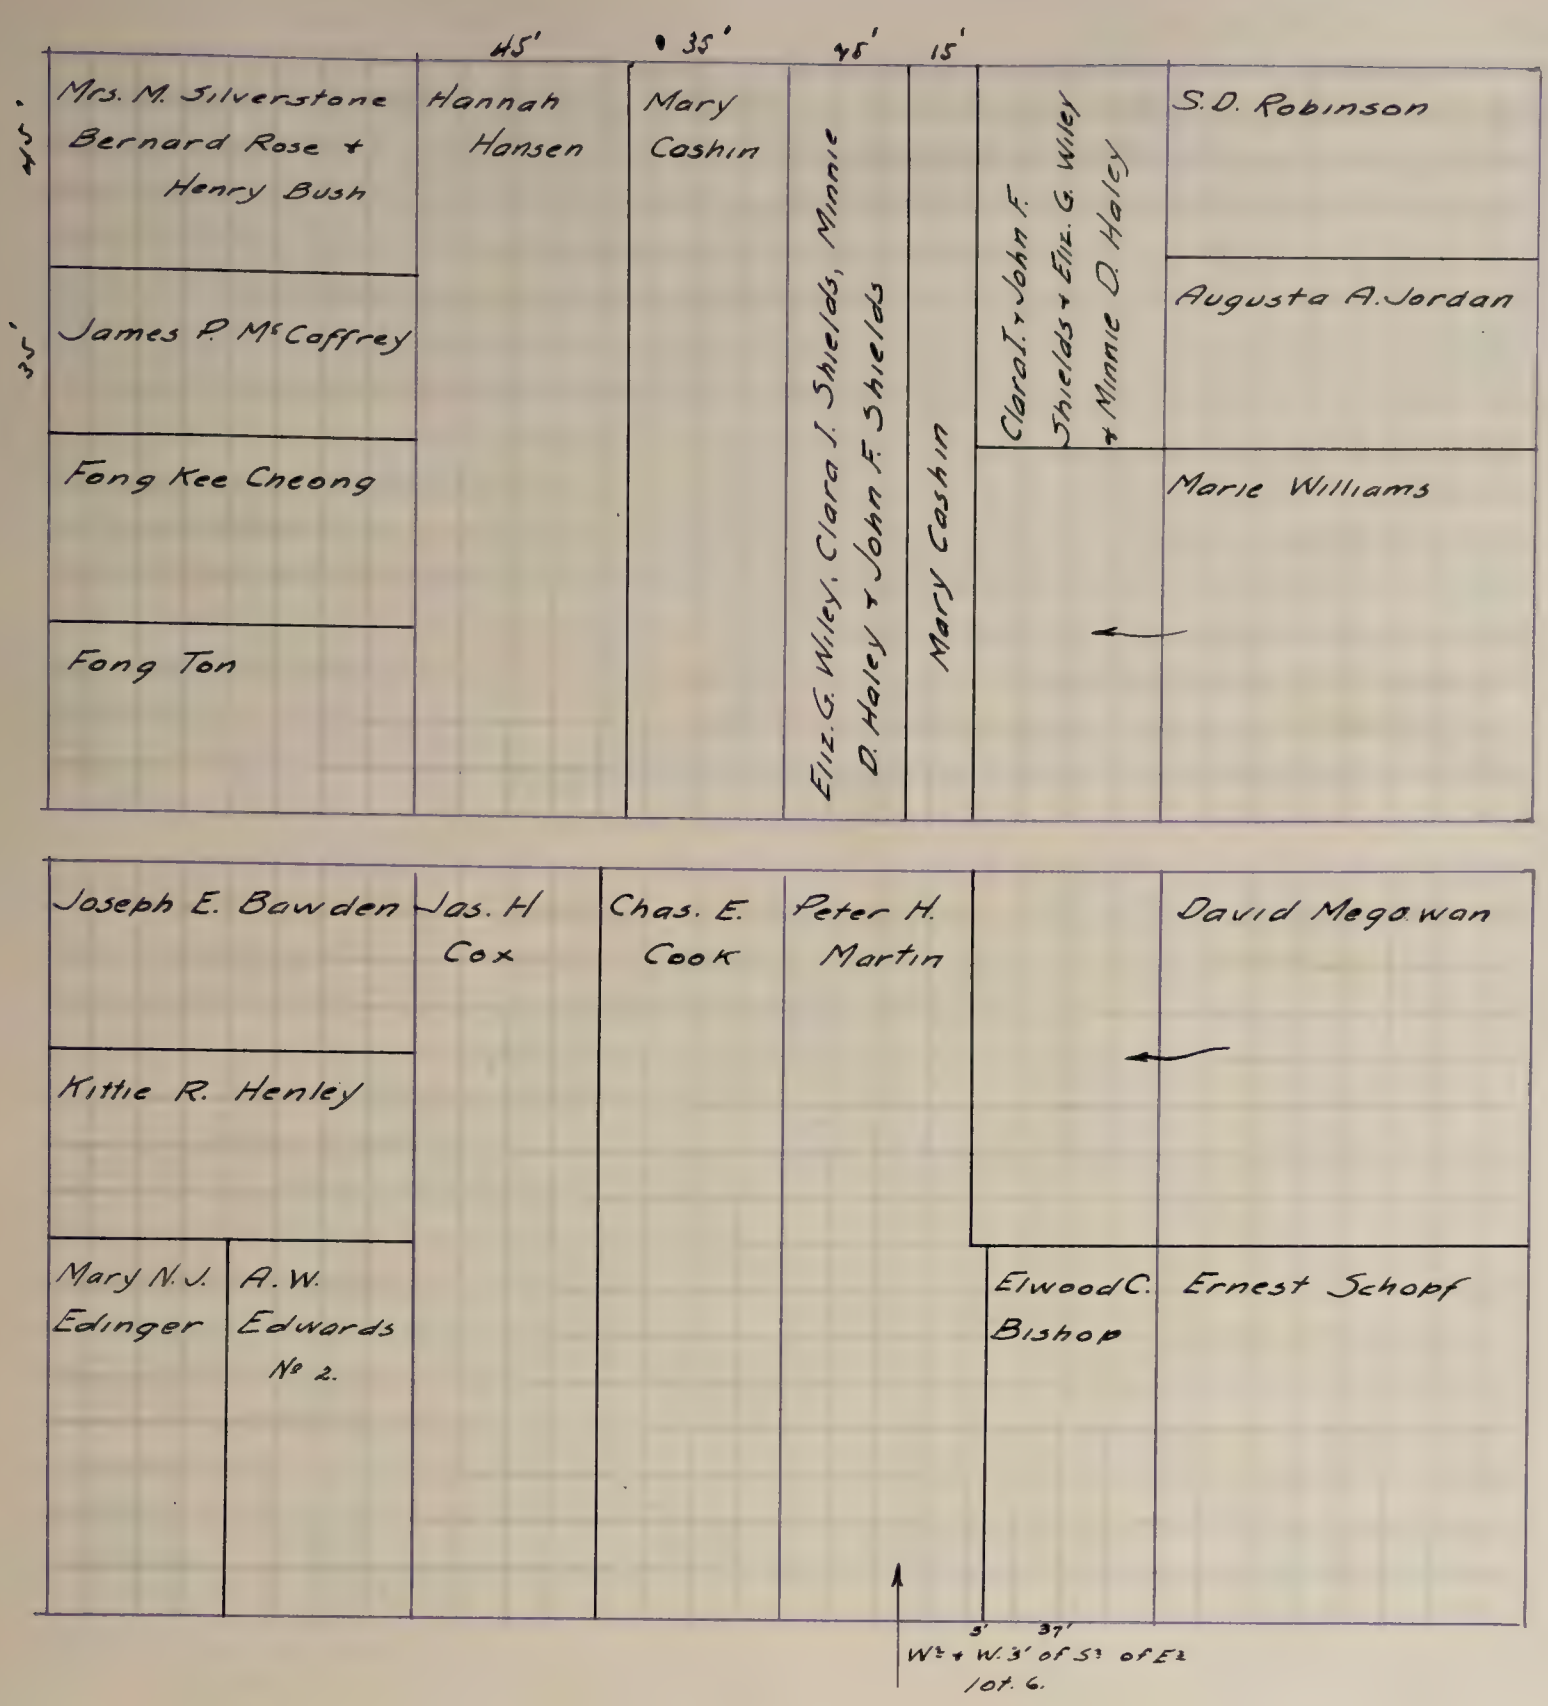 45' 35' 15'
45'
Mrs. M. Silverstone
Bernard Rose +
Henry Bush
35'
James P. McCaffrey
Fong Kee Cheong
Fong Ton
Hannah
Hansen
Mary
Cashin
Eliz. G. Wiley, Clara I. Shields, Minnie
D. Haley + John F. Shields
Mary Cashin
Clara I. + John F.
Shields + Eliz. G. Wiley
+ Minnie D. Haley
S.D. Robinson
Augusta A. Jordan
Marie Williams
Joseph E. Bawden
Kittie R. Henley
Mary N.J.
Edinger
A.W.
Edwards
No 2.
Jas. H
Cox
Chas. E.
Cook
Peter H.
Martin
David Megowan
Elwood C.
Bishop
Ernest Schopf
37'
W½ + W. 3' of S½ of E½
lot. 6.